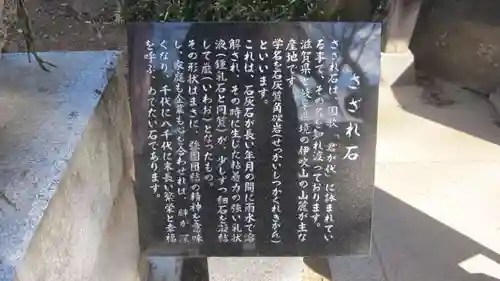 さざれ石
さざれ石は、国歌「君が代」に詠まれてい
る事で、その名を知れ渡っております。
滋賀県と岐阜県境の伊吹山の山麓が主な
産地です。
学名を石灰質角礫岩(せっかいしつかくれきがん)
といいます。
これは、石灰石が長い年月の間に雨水で溶
解され、その時に生じた粘着力の強い乳状
液(鍾乳石と同質)が、少しずつ細石を凝結
して巌(いわお)となったもの。
その形状はまさに、強固団結の精神を意味
し、家庭も企業も心を合わせれば、絆が深
くなり、千代に八千代に末長い繁栄と幸福
を呼ぶ、めでたい石であります。